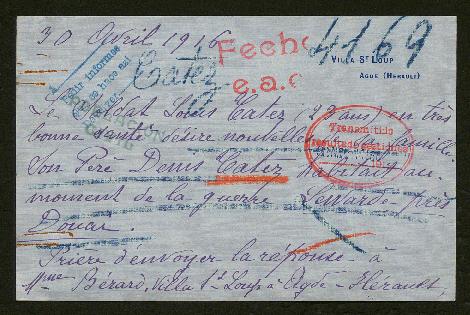 30 Avril 1916
Fecho
e.a.c
4169
Catez
VILLA St LOUP
AGDE (HERAULT)
Le Soldat Louis Catez (19 ans) en très
bonne santé désire nouvelles famille,
Son Père Denis Catez habitait au
moment de la guerre Lewarde près
Douai.
Prière d'envoyer la réponse à
Mme Bérard, Villa St-Loup à Agde - Hérault,
Transmitido